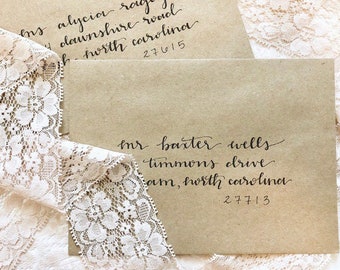 ms alycia
dawnshire road
north carolina
27615
mr baxter wells
timmons drive
am, north carolina
27713